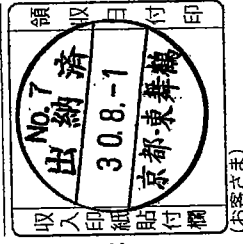 領収日付印
No. 7
出納済
30.8.-1
京都・東舞鶴
収入印紙貼付欄
(お客さま)